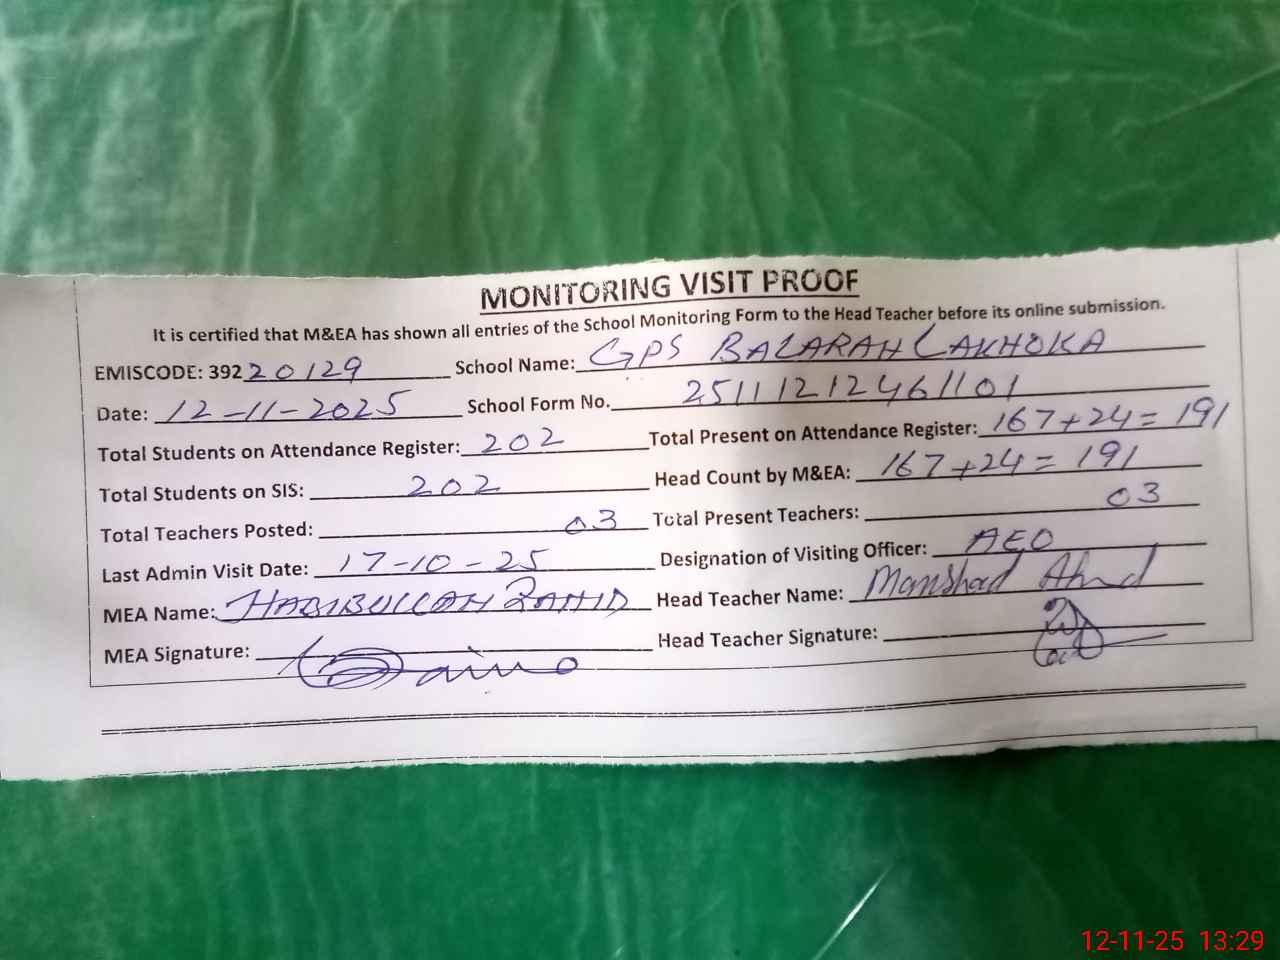 MONITORING VISIT PROOF
It is certified that M&EA has shown all entries of the School Monitoring Form to the Head Teacher before its online submission.
EMISCODE: 39220129 School Name: GPS BAZARAH LAKHOKA
Date: 12-11-2025 School Form No. 25111212461101
Total Students on Attendance Register: 202 Total Present on Attendance Register: 167+24=191
Total Students on SIS: 202 Head Count by M&EA: 167+24=191
Total Teachers Posted: 03 Total Present Teachers: 03
Last Admin Visit Date: 17-10-25 Designation of Visiting Officer: AEO
MEA Name: HABIBULLAH ZAHID Head Teacher Name: Manshad Ahmd
MEA Signature: Head Teacher Signature:
12-11-25 13:29